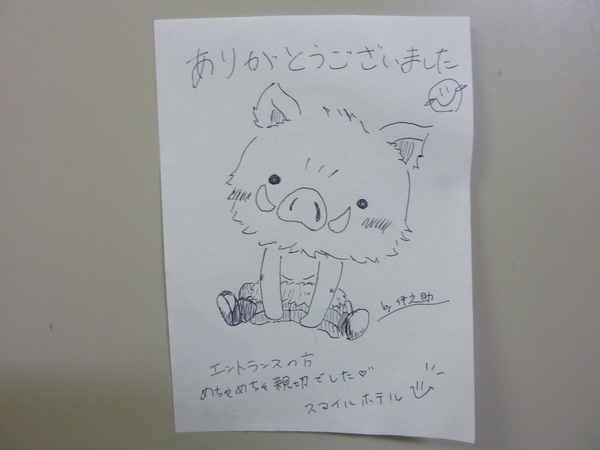 ありがとうございました
by 伊之助
エントランスの方
めちゃめちゃ親切でした♡
スマイルホテル